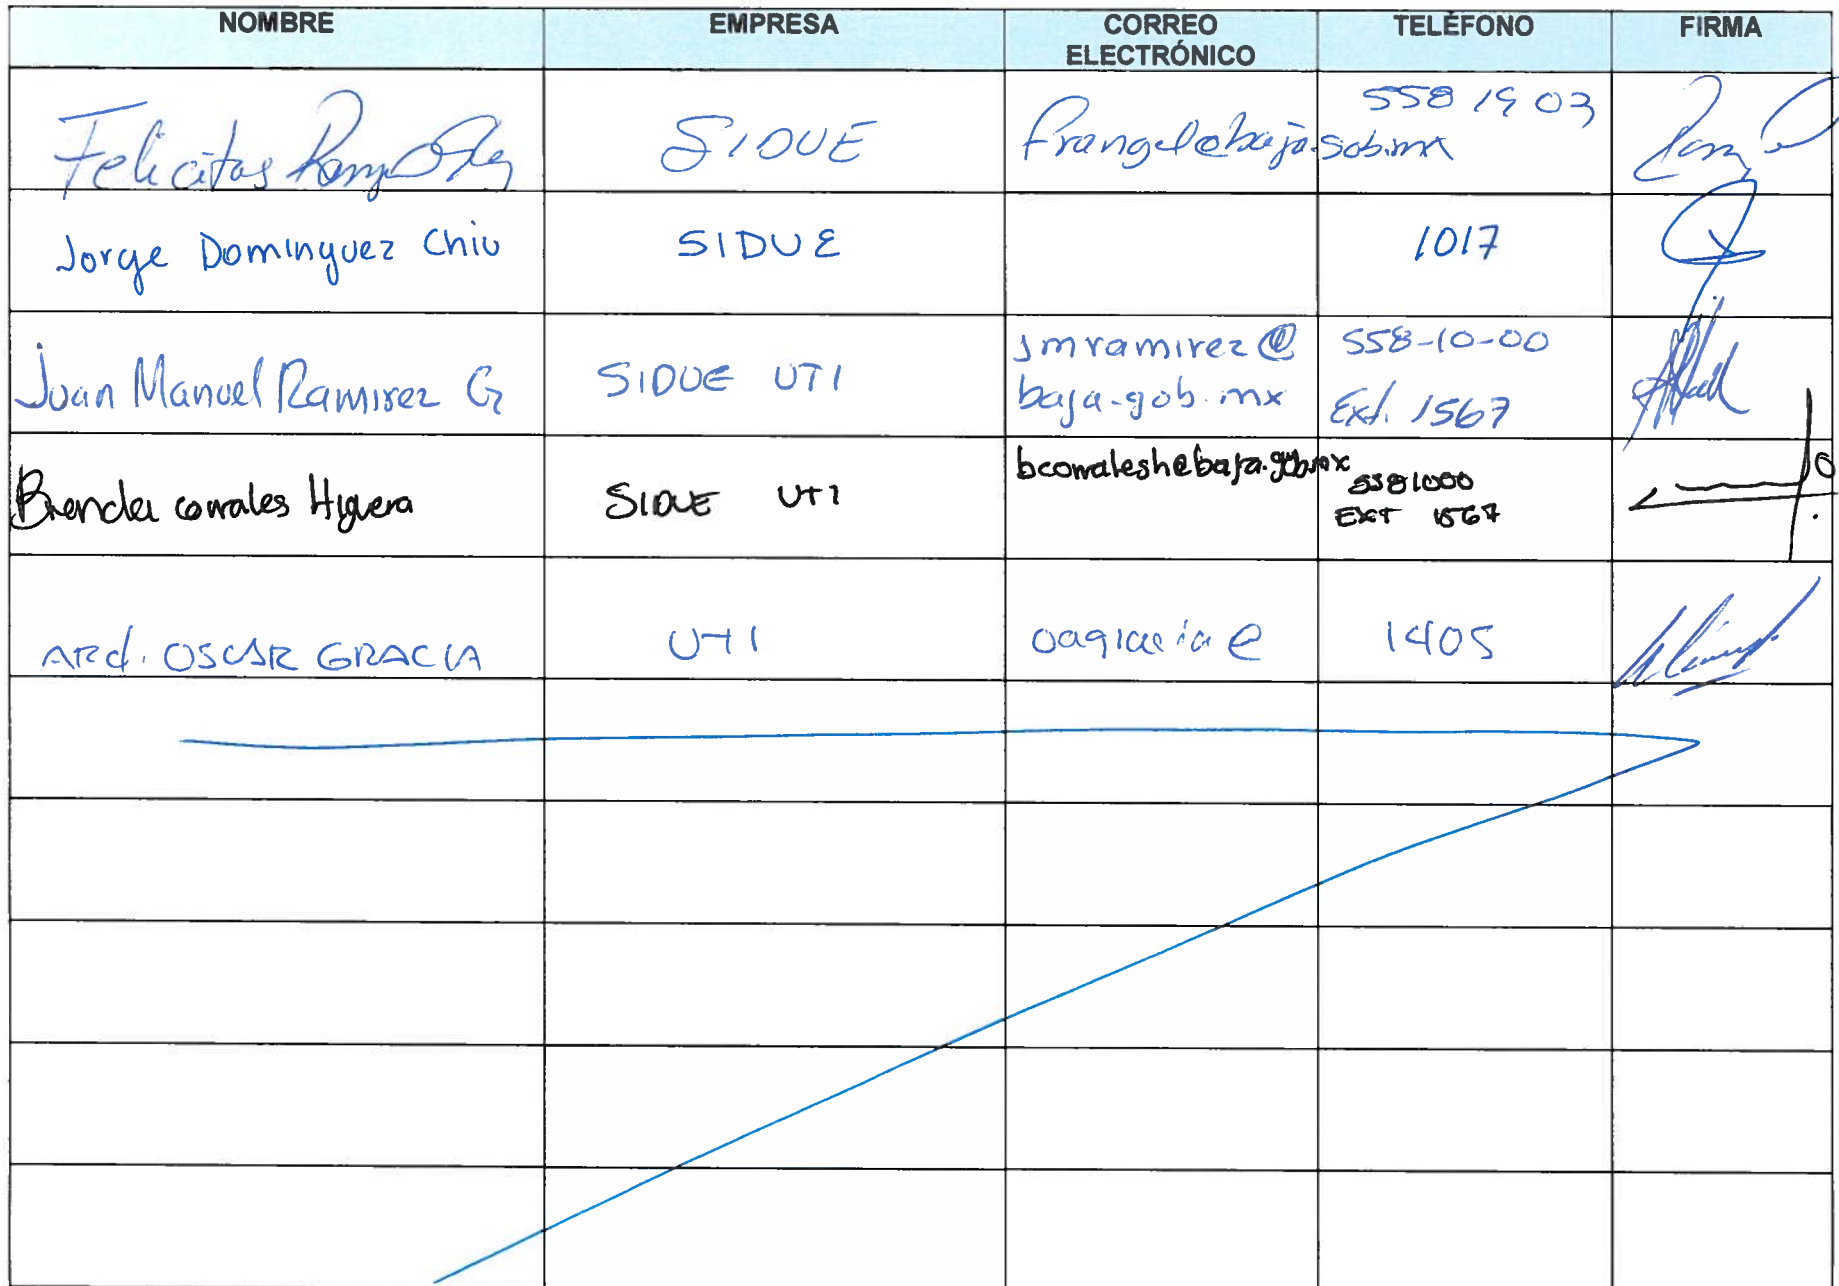 NOMBRE EMPRESA CORREO ELECTRÓNICO TELÉFONO FIRMA
Felicitas SIDUE frangel@baja.gob.mx 558 19 03
Jorge Dominguez Chiu SIDUE 1017
Juan Manuel Ramirez G SIDUE UTI jmramirez@ 558-10-00
baja.gob.mx Ext. 1567
Brenda corrales Higuera SIDUE UTI bcorralesh@baja.gob.mx 5581000
EXT 1567
ARQ. OSCAR GRACIA UTI oagracia@ 1405